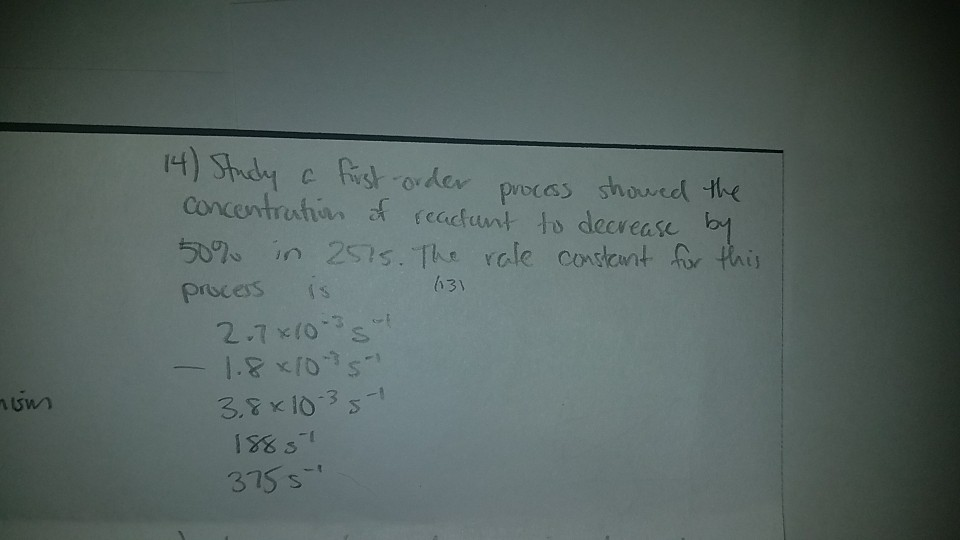 14) Study a first-order process showed the
concentration of reactant to decrease by
50% in 257s. The rate constant for this
process is
2.7 x10⁻³ s⁻¹
— 1.8 x10⁻³ s⁻¹
3.8 x 10⁻³ s⁻¹
188 s⁻¹
375 s⁻¹